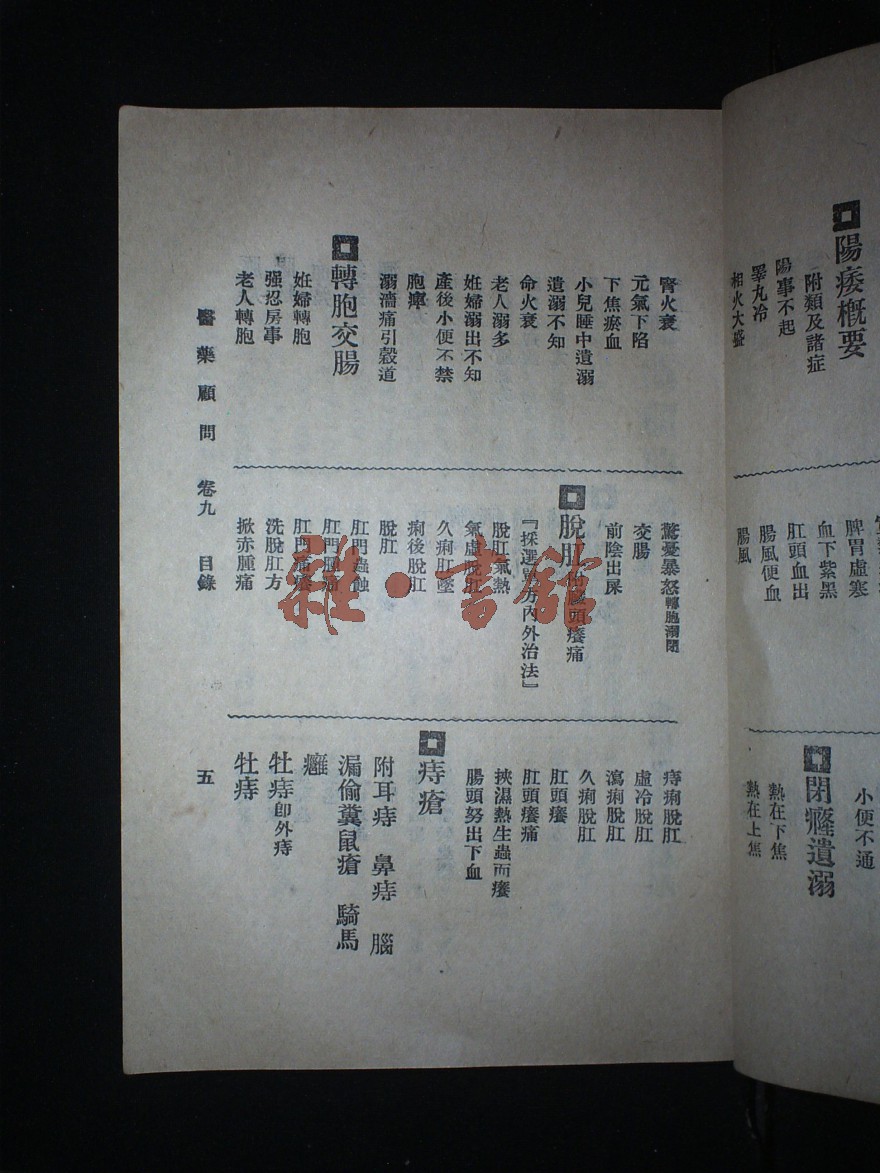 陽痿概要
附類及諸症
陽事不起
睪丸冷
相火大盛
脾胃虛寒
血下紫黑
肛頭血出
腸風便血
腸風
小便不通
閉癃遺溺
熱在下焦
熱在上焦
腎火衰
元氣下陷
下焦瘀血
小兒睡中遺溺
遺溺不知
命火衰
老人溺多
妊婦溺出不知
產後小便不禁
胞痺
溺濇痛引穀道
轉胞交腸
妊婦轉胞
强忍房事
老人轉胞
驚憂暴怒轉胞溺閉
交腸
前陰出屎
脫肛 頭癢痛
『採選單方內外治法』
脫肛氣熱
氣虛脫肛
久痢肛墜
痢後脫肛
脫肛
肛門蟲蝕
肛門
肛門
洗脫肛方
掀赤腫痛
痔痢脫肛
虛冷脫肛
瀉痢脫肛
久痢脫肛
肛頭癢
肛頭癢痛
挾濕熱生蟲而癢
腸頭努出下血
痔瘡
附耳痔 鼻痔 腦
漏偷糞鼠瘡 騎馬
癰
牡痔卽外痔
牡痔
醫藥顧問 卷九 目錄 五
雜·書館